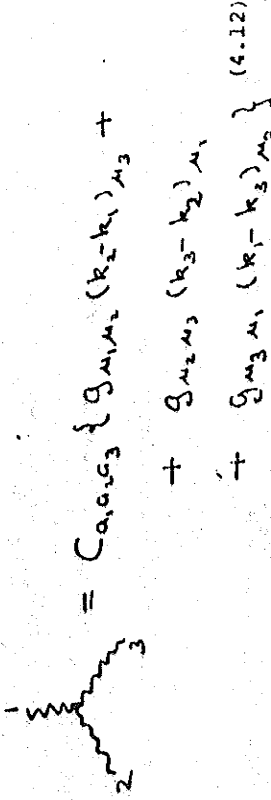 1
2 3 = C_{a₁a₂a₃} { g_{μ₁μ₂} (k₂-k₁)_{μ₃} +
+ g_{μ₂μ₃} (k₃-k₂)_{μ₁}
+ g_{μ₃μ₁} (k₁-k₃)_{μ₂} } (4.12)